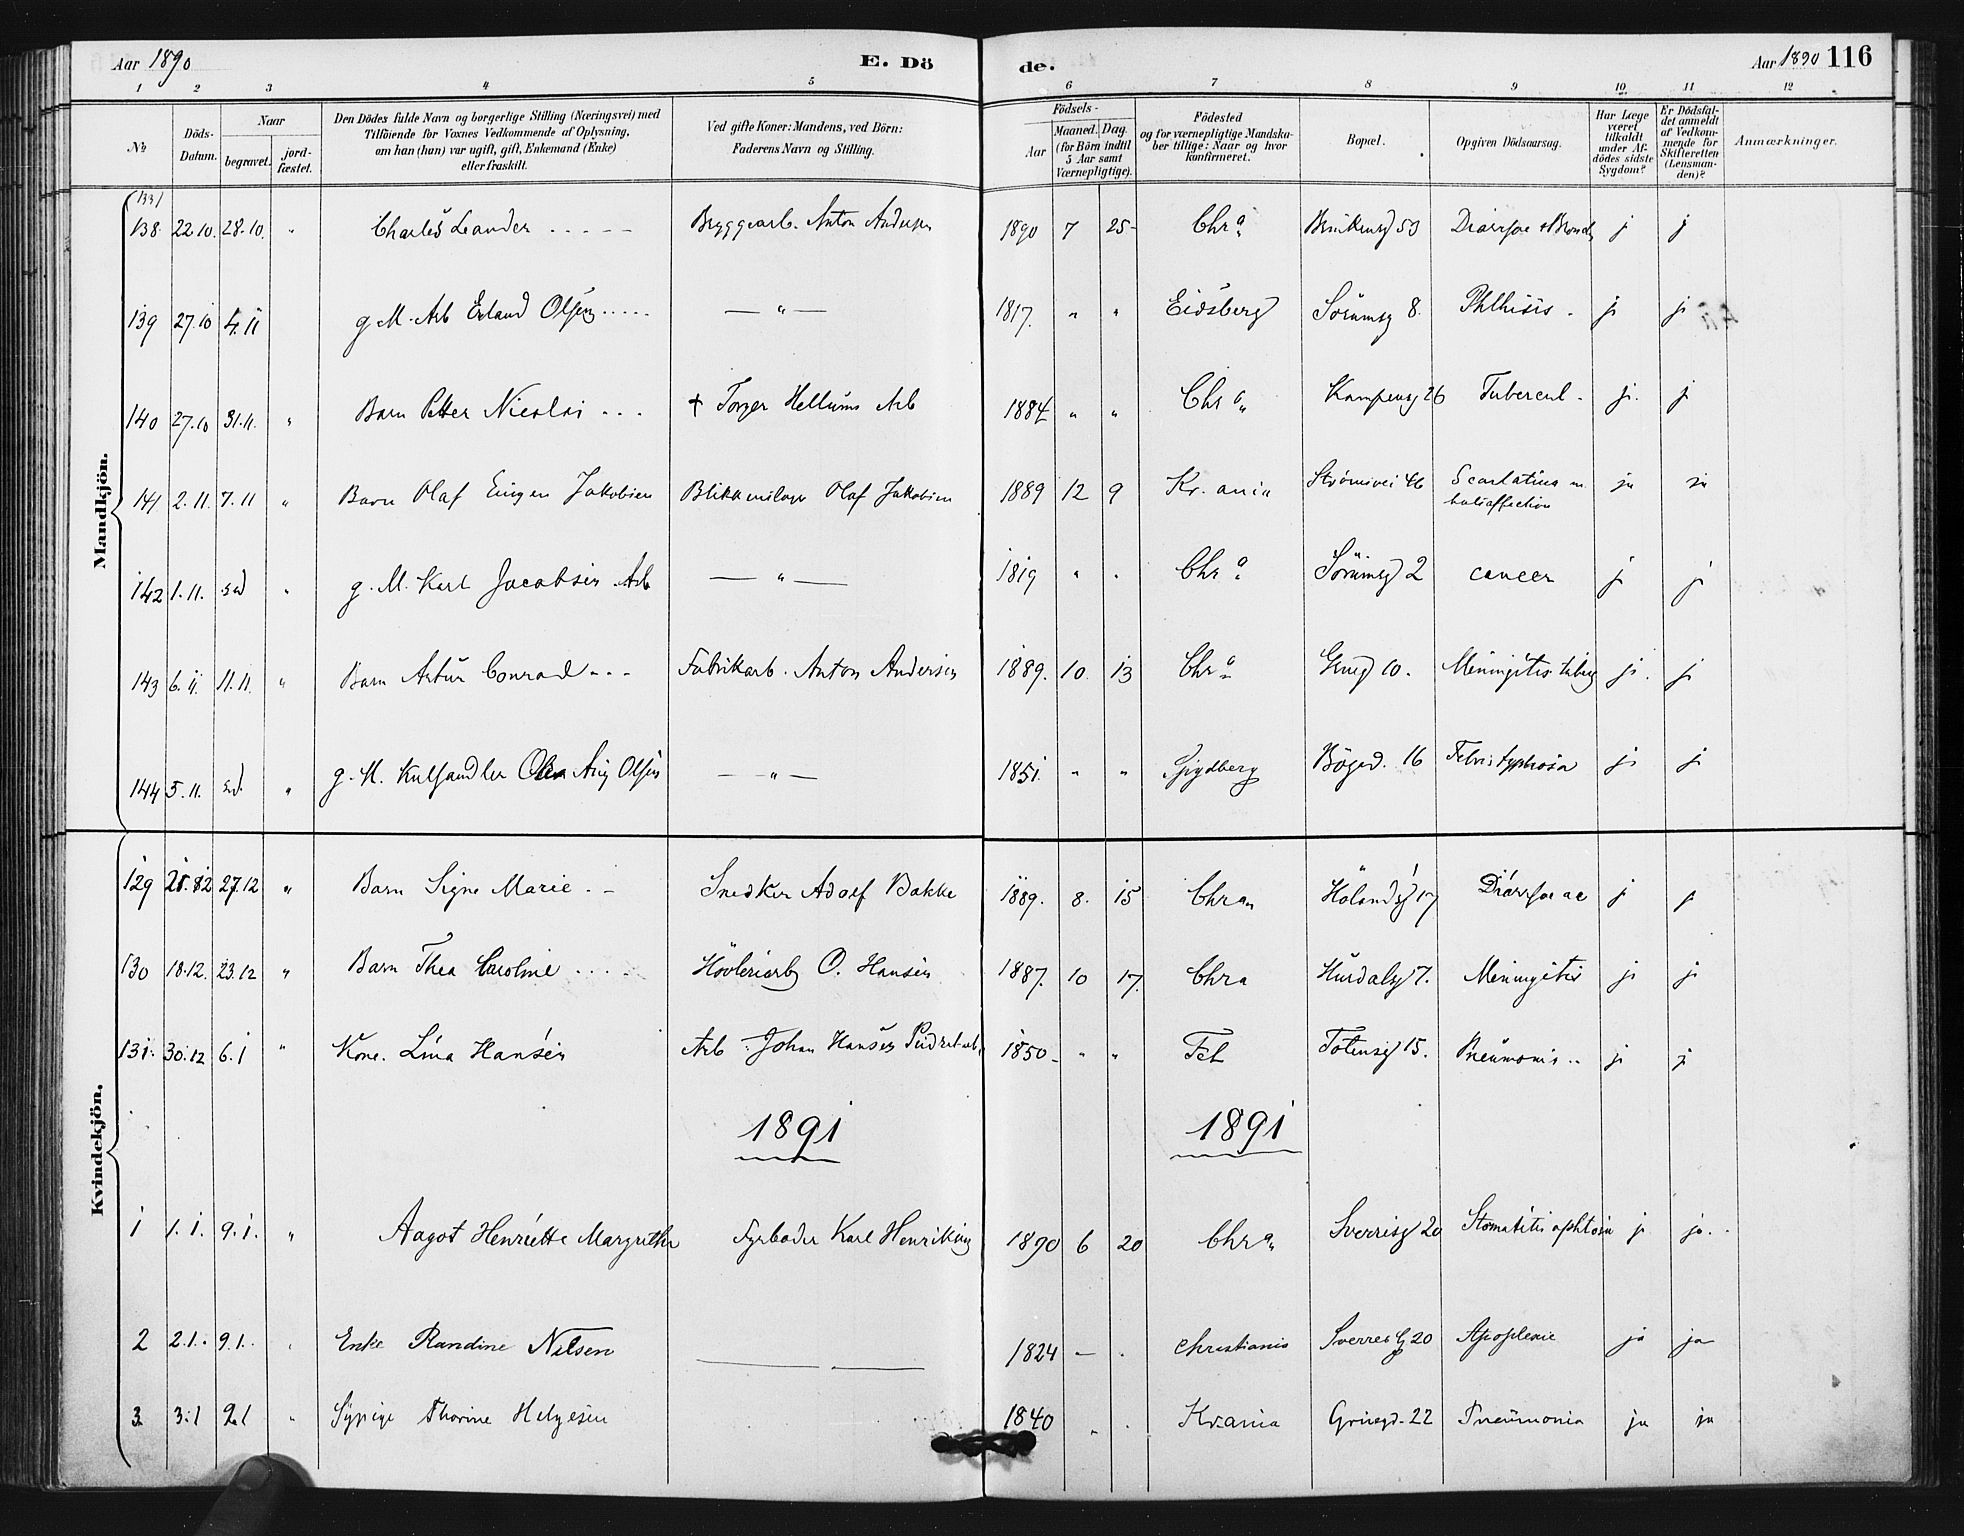 Aar 1890 E. Dö de. Aar 1890 116
1 2 3 4 5 6 7 8 9 10 11 12
No
Döds-Datum.
Naar
begravet.
jord-fæstet.
Den Dödes fulde Navn og borgerlige Stilling (Næringsvei) med
Tilföiende for Voxnes Vedkommende af Oplysning,
om han (hun) var ugift, gift, Enkemand (Enke)
eller fraskilt.
Ved gifte Koner: Mandens, ved Börn:
Faderens Navn og Stilling.
Födsels-
Aar
Maaned. Dag.
(for Börn indtil
5 Aar samt
Værnepligtige).
Födested
og for værnepligtige Mandska-
ber tillige: Naar og hvor
konfirmeret.
Bopæl.
Opgiven Dödsaarsag.
Har Læge
været
tilkaldt
under Af-
dödes sidste
Sygdom?
Er Dödsfal-
det anmeldt
af Vedkom-
mende for
Skifteretten
(Lensman-
den)?
Anmærkninger.
Mandkjön.
138. 22.10. 28.10. " Charles Leander Bryggearb. Anton Andersen 1890 7 25 Chr a " 53 Diarrhoe j j
139 27.10 4.11 g. M. Arb Erland Olsen — " — 1817. " " Eidsberg Sörumsg 8. Phthisis j j
140 27.10 31.11. " Barn Petter Nicolai + Torger Hellums Arb 1884 " " Chr a " Kampensg 26 Tubercul. j j
141 2.11. 7.11 " Barn Olaf Eugen Jakobsen Blikkenslager Olaf Jakobsen 1889 12 9 Kr. ania Strömsvei 46 Scarlatina m. halsaffection ja ja
142 1.11. " g. M. Karl Jacobsen Arb — " — 1819 " " Chr a " Sörumsg 2 cancer j j
143 6.11. 11.11. " Barn Artur Conrad Fabrikarb. Anton Andersen 1889. 10. 13 Chr a " 10. Meningitis tuberc j j
144 5.11. " g. M. Kulhandler Aug Olsen — " — 1851. " " Spydberg Bögd. 16 Febris typhosa j j
Kvindekjön.
129 27.12 " Barn Signe Marie Snedker Adolf Bakke 1889. 8. 15 Chra " Hölandsg 17 Diarrhoe ac j j
130 18.12. 23.12 " Barn Thea Caroline Hövleriarb O. Hansen 1887. 10 17. Chra Hurdalsg 7. Meningitis j j
131. 30.12 6.1 " Kone. Lina Hansen Arb. Johan Hansen 1850 " " Fet Totensg 15. Pneumonia j j
1891 1891
1 1.1. 9.1. " Aagot Henriette Margrethe Fyrböder Karl Henriksen 1890 6 20 Chra " Sverresg 20 Stomatitis aphtosa j ja.
2 2.1. 9.1. Enke Randine Nilsen 1824 — Christiania Sverres G 20 Apoplexie ja ja
3. 3.1 9.1 " Sypige Thorine Helgesen 1840 " Kr.ania Grönegd. 22 Pneumonia ja ja